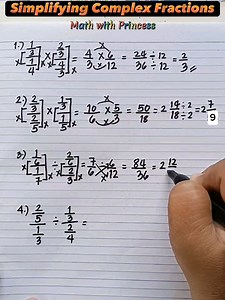 Simplifying Complex Fractions
Math with Princess
1.) [1/3 / 1/4] × [2/3 / 4/3] = 4/3 × 6/12 = 24/36 ÷ 12/12 = 2/3
2.) [2/3 / 2/5] × [1/3 / 1/5] = 10/6 × 5/3 = 50/18 = 2 14/18 ÷2/÷2 = 2 7/9
3) [1/6 / 1/7] ÷ [2/6 / 2/3] = 7/6 ÷ 6/12 = 84/36 = 2 12
4.) 2/5 / 1/3 ÷ 1/3 / 2/4 =